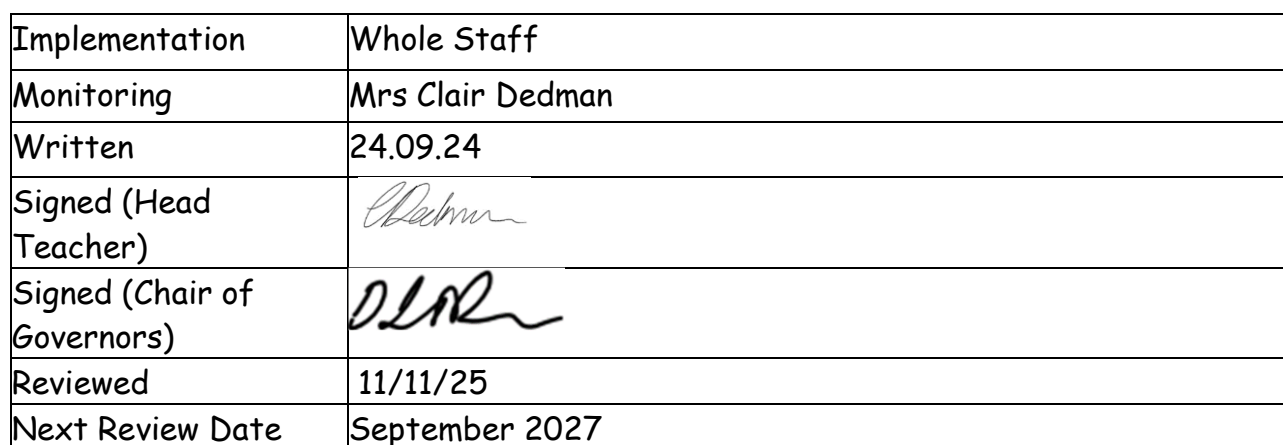 Implementation Whole Staff
Monitoring Mrs Clair Dedman
Written 24.09.24
Signed (Head
Teacher)
CDedman
Signed (Chair of
Governors)
Reviewed 11/11/25
Next Review Date September 2027